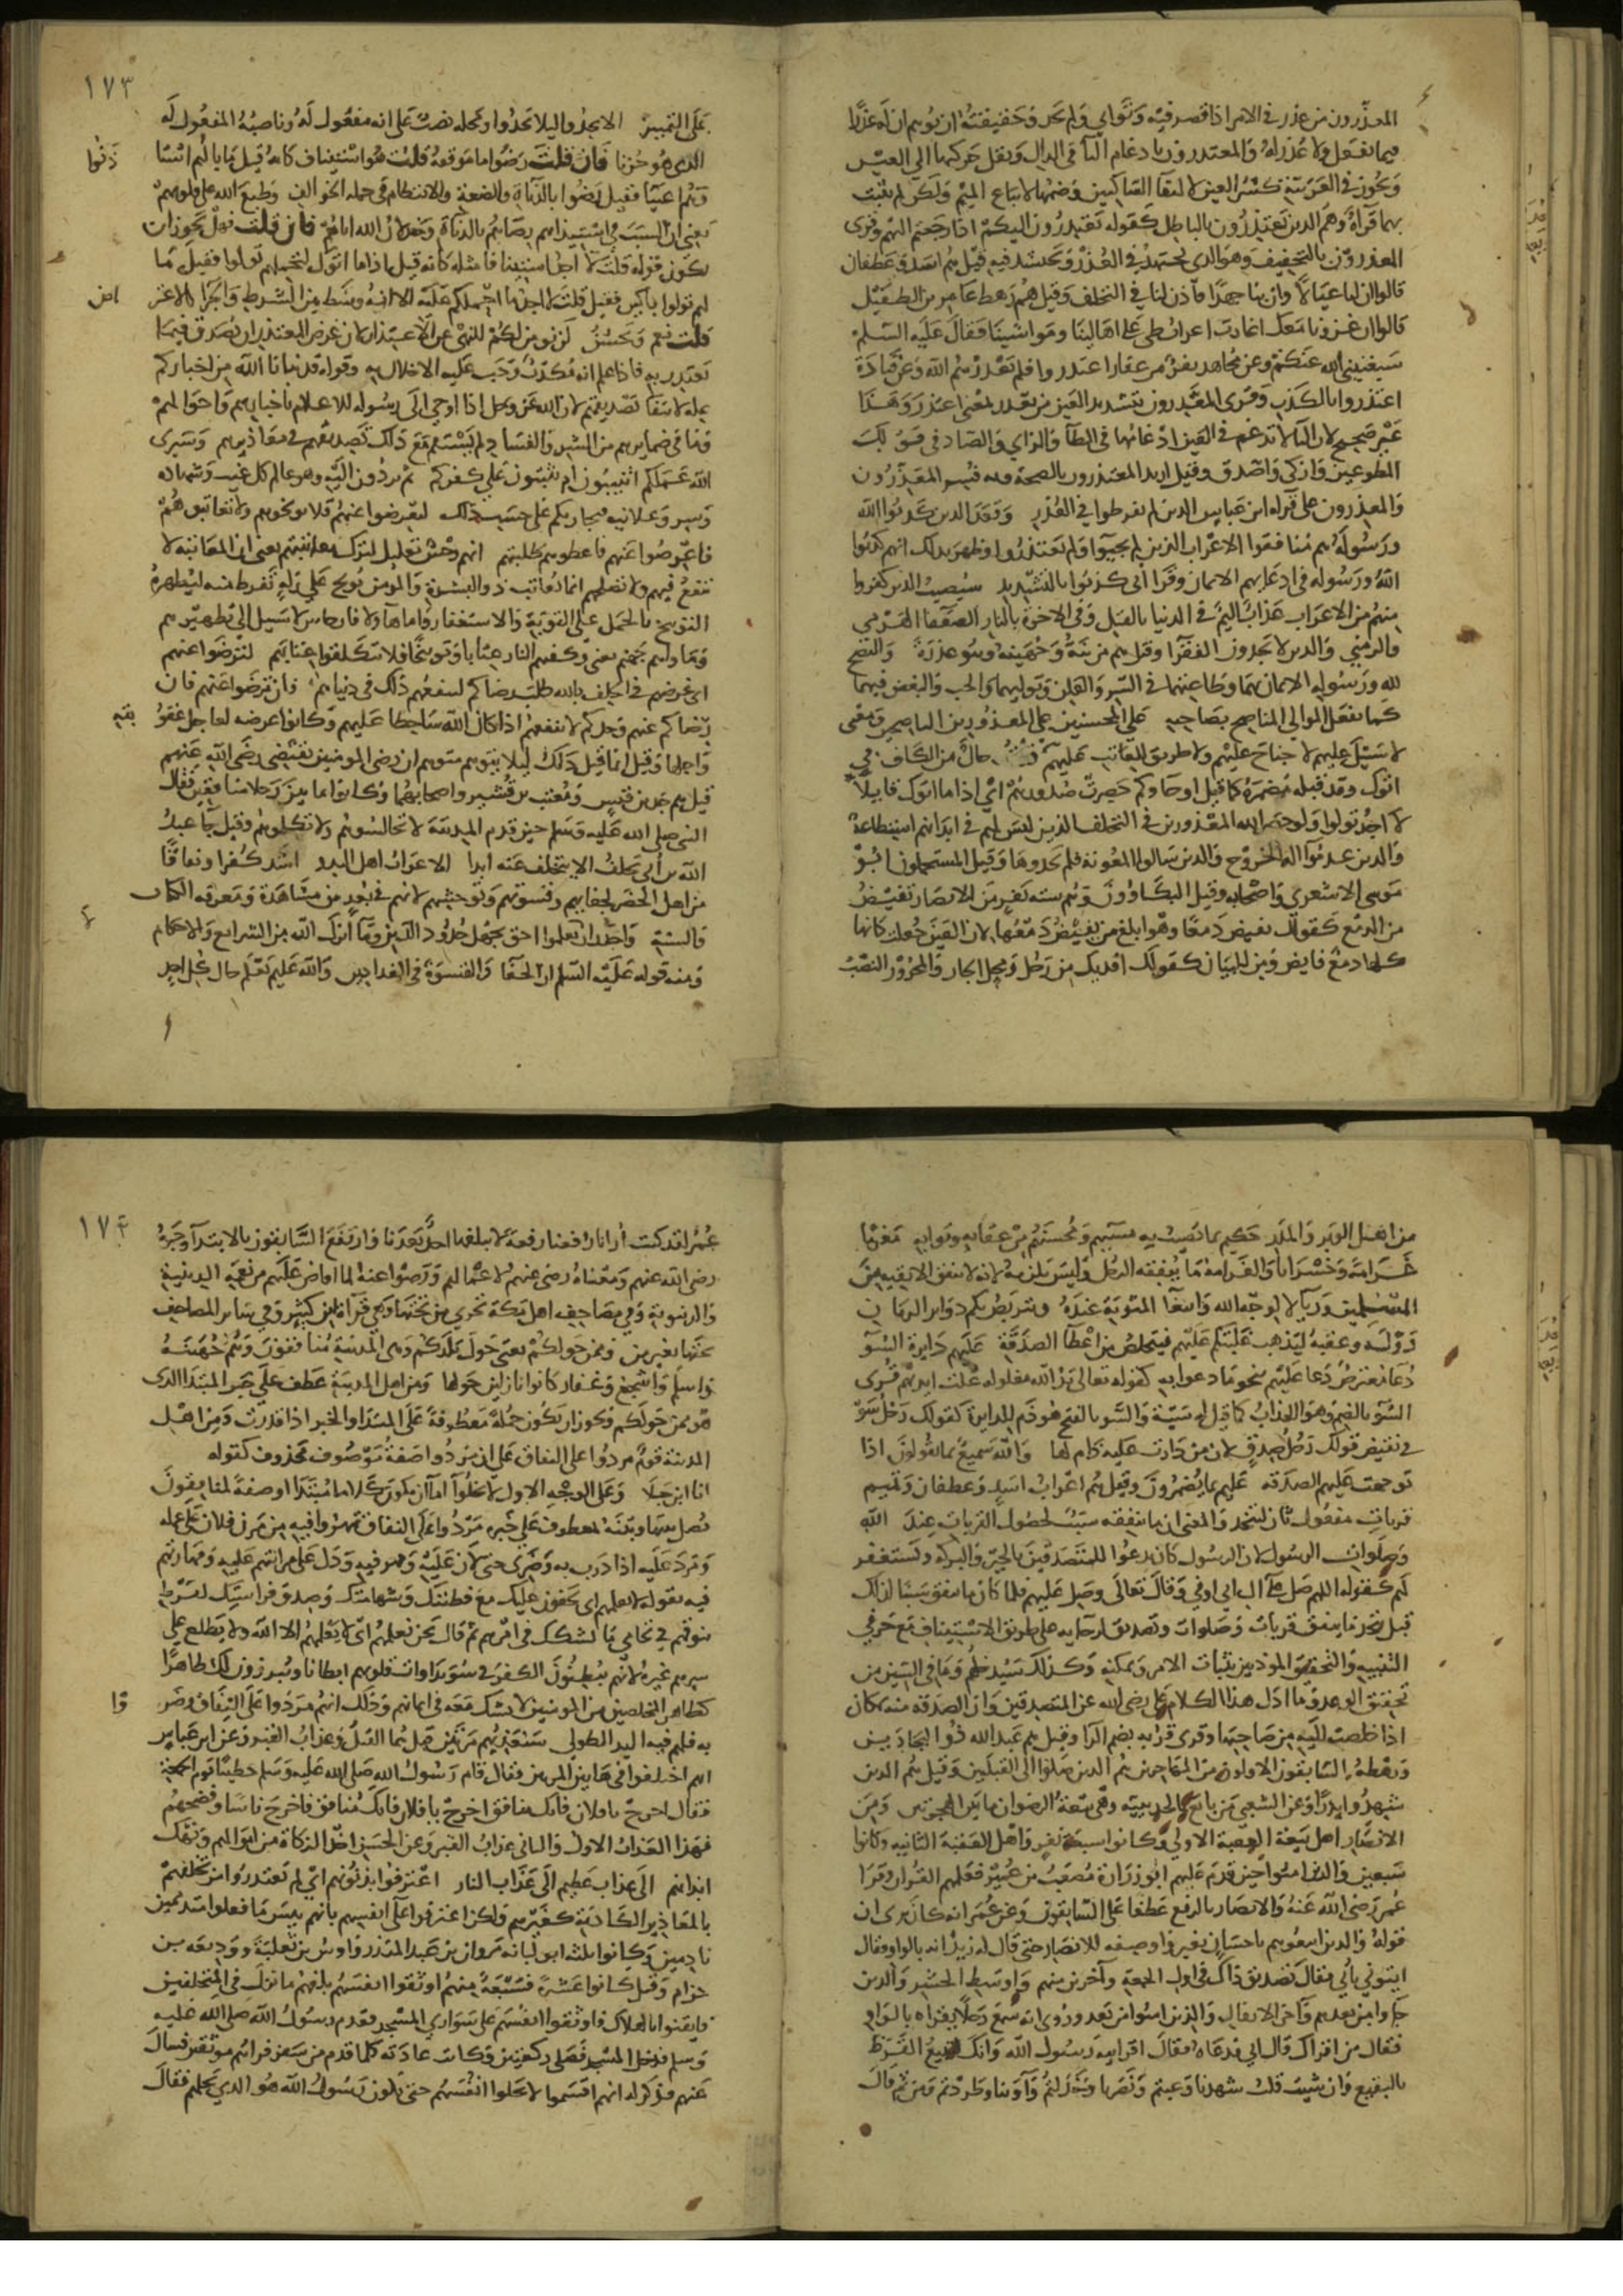 المعذرون من عذر في الامر اذا قصر فيه وتوانى ولم يجد وحقيقته ان يوهم ان له عذرا
فيما يفعل ولا عذر له والمعتذرون بادغام التا في الدال ونقل حركتها الى العين
ويجوز في العربية كسر العين لالتقا الساكنين وضمها لاتباع الميم ولكن لم تثبت
بهما قراة وهم الذين يعتذرون بالباطل كقوله يعتذرون اليكم اذا رجعتم اليهم وقرى
المعذرون بالتخفيف وهو الذى يجتهد في العذر ويحتشد فيه قيل هم اسد وغطفان
قالوا ان لنا عيالا وان بنا جهدا فأذن لنا في التخلف وقيل هم رهط عامر بن الطفيل
قالوا ان غزونا معك اغارت اعراب طى على اهالينا ومواشينا فقال عليه السلم
سيغنينى الله عنكم وعن مجاهد نفر من غفار اعتذروا فلم يعذرهم الله وعن قتادة
اعتذروا بالكذب وقرى المعذرون بتشديد العين من تعذر بمعنى اعتذر وهذا
غير صحيح لان التا لا تدغم في العين ادغامها في الطآ والزاي والصاد في قولك
المطوعين وازكى واصدق وقيل اريد المعتذرون بالصحة وبه فسر المعذرون
والمعذرون على قراه ابن عباس الذين لم يفرطوا في العذر وقعد الذين كذبوا الله
ورسوله هم منافقوا الاعراب الذين لم يجيبوا ولم يعتذروا وظهر بذلك انهم كذبوا
الله ورسوله في ادعايهم الايمان وقرا ابى كذبوا بالتشديد سيصيب الذين كفروا
منهم من الاعراب عذاب اليم في الدنيا بالقتل وفي الاخرة بالنار الضعفا الهرمى
والزمنى والذين لا يجدون الفقرا وقيل هم مزينة وجهينة وبنو عذرة والنصح
لله ورسوله الايمان بهما وطاعتهما في السر والعلن وتوليهما والحب والبغض فيهما
كما يفعل الموالي المناصح بصاحبه على المحسنين على المعذورين الناصحين ومعنى
لا سبيل عليهم لا جناح عليهم ولا طريق للعاتب عليهم حال من الكاف في
اتوك وقد قبله مضمره كما قيل اوجاوكم حصرت صدورهم اى اذا ما اتوك قايلا
لا اجد تولوا ولو حصر الله المعذورين في التخلف الذين ليس لهم في ابدانهم استطاعة
والذين عدموا الة الخروج والذين سالوا المعونة فلم يجدوها وقيل المستحملون ابو
موسى الاشعرى واصحابه وقيل البكاوون وهم ستة نفر من الانصار تفيض
من الدمع كقولك تفيض دمعا وهو ابلغ من يفيض دمعها لان العين جعلت كانها
كلها دمع فايض ومن للبيان كقولك افديك من رجل ومحل الجار والمجرور النصب
١٧٣
على التمييز الا يجدوا ليلا يجدوا ومحله نصب على انه مفعول له وناصبه المفعول له
الذى هو حزنا فان قلت رضوا ما موقعه قلت هو استيناف كانه قيل ما بالهم استا
ذنوا
وهم اغنيا فقيل رضوا بالدناة والضعة والانتظام في جملة الخوالف وطبع الله على قلوبهم
يعنى ان السبب في استيذانهم رضاهم بالدناة وخذلان الله اياهم فان قلت فهل يجوز ان
يكون قوله قلت لا اجد استينافا مثله كانه قيل اذا ما اتوك لتحملهم تولوا فقيل ما
لهم تولوا باكين فقيل قلت لا اجد ما احملكم عليه الا انه وسط بين الشرط والجزا كالاعتر
اض
قلت نعم ويحسن لن نومن لكم للنهى عن الاعتذار لان غرض المعتذر ان يصدق فيما
يعتذر به فاذا علم انه مكذب وجب عليه الاخلال به وقوله قد نبانا الله من اخباركم
علة لانتفا تصديقهم لان الله عز وجل اذا اوحى الى رسوله للاعلام باخبارهم واحوالهم
وما في ضمايرهم من الشر والفساد لم يستقم مع ذلك تصديقهم في معاذيرهم وسيرى
الله عملكم اتنيبون ام تثبتون على كفركم ثم تردون اليه وهو عالم كل غيب وشهادة
وسر وعلانية فيجازيكم على حسب ذلك لتعرضوا عنهم فلا توبخوهم ولا تعاتبوهم
فاعرضوا عنهم فاعطوهم طلبتهم انهم رجس تعليل لترك معاتبتهم يعنى ان المعاتبة لا
تنفع فيهم ولا تصلحهم انما يعاتب ذو البشرة والمومن يوبخ على زلة تفرط منه ليطهره
التوبيخ بالحمل على التوبة والاستغفار واما هاولا فارجاس لا سبيل الى تطهيرهم
وماواهم جهنم يعنى وكفتهم النار عتابا وتوبيخا فلا تتكلفوا عتابهم لترضوا عنهم
اى غرضهم في الحلف بالله طلب رضاكم لينفعهم ذلك في دنياهم فان ترضوا عنهم فان
رضاكم عنهم وحدكم لا ينفعهم اذا كان الله ساخطا عليهم وكانوا عرضه لعاجل عقو
بته
واجلها وقيل انما قيل ذلك ليلا يتوهم متوهم ان رضى المومنين يقتضى رضى الله عنهم
قيل هم جد بن قيس ومعتب بن قشير واصحابهما وكانوا ثمانين رجلا منافقين فقال
النبى صلى الله عليه وسلم حين قدم المدينة لا تجالسوهم ولا تكلموهم وقيل جا عبد
الله بن أبى يحلف الا يتخلف عنه ابدا الاعراب اهل البدو اشد كفرا ونفاقا
من اهل الحضر لجفايهم وقسوتهم وتوحشهم لانهم في بعد من مشاهدة ومعرفة الكتاب
والسنة واجدر ان يعلموا احق بجهل حدود الدين وما انزل الله من الشرايع والاحكام
ومنه قوله عليه السلم ان الجفا والقسوة في الفدادين والله عليم يعلم حال كل احد
من اهل الوبر والمدر حكيم بما يصيب به مسيهم ومحسنهم من عقابه وثوابه مغرما
غرامة وخسرانا والغرامة ما ينفقه الرجل وليس يلزمه لانه لا ينفق الا تقية من
المسلمين ورياء لا لوجه الله وابتغا المثوبة عنده ويتربص بكم دواير الزمان
دوله وعقبه ليذهب غلبتكم عليهم فيتخلص من اعطآ الصدقة عليهم دايرة السو
دعا معترض دعا عليهم بنحو ما دعوا به كقوله تعالى يد الله مغلوله غلت ايديهم قرى
السو بالضم وهو العذاب كما قيل له سيئة والسو بالفتح هو ذم للدايرة كقولك رجل سو
في نقيض قولك رجل صدق لان من دارت عليه ذام لها والله سميع بما يقولون اذا
توجهت عليهم الصدقه عليم بما يضمرون وقيل هم اعراب اسد وغطفان وتميم
قربات مفعول ثان ليتخذ والمعنى ان ما ينفقه سبب لحصول القربات عند الله
وصلوات الرسول لان الرسول كان يدعوا للمتصدقين بالخير والبركه ويستغفر
لهم كقوله اللهم صل على آل ابى اوفى وقال تعالى وصل عليهم فلما كان ما ينفق سببا لذلك
قيل يتخذ ما ينفق قربات وصلوات وتصديق لرجايه على طريق الاستيناف مع حرفي
التنبيه والتحقيق الموذنين بثبات الامر وتمكنه وكذلك سيدخلهم وما في السين من
تحقيق الوعد وما ادل هذا الكلام على رضى الله عن المتصدقين وان الصدقة منه بمكان
اذا خلصت النية من صاحبها وقرى قربه بضم الرا وقيل هم عبد الله ذوا البجادين
ورهطه السابقون الاولون من المهاجرين هم الذين صلوا الى القبلتين وقيل هم الذين
شهدوا بدرا وعن الشعبى من بايع بالحديبية وهى بيعة الرضوان ما بين الهجرتين ومن
الانصار اهل بيعة العقبة الاولى وكانوا سبعة نفر واهل العقبة الثانية وكانوا
سبعين والذين امنوا حين قدم عليهم ابو زرارة مصعب بن عمير فعلمهم القران وقرا
عمر رضى الله عنه والانصار بالرفع عطفا على السابقون وعن عمر انه كان يرى ان
قوله والذين اتبعوهم باحسان بغير واو صفه للانصار حتى قال له زيد انه بالواو فقال
ايتونى بأبى فقال تصديق ذلك في اول الجمعة وآخرين منهم واوسط الحشر والذين
جاوا من بعدهم وآخر الانفال والذين امنوا من بعد وروى انه سمع رجلا يقراه بالواو
فقال من اقراك قال ابى فدعاه فقال اقرانيه رسول الله وانك لتبيع القرظ
بالبقيع وان شيت قلت شهدنا وغبتم ونصرنا وخذلتم وآوينا وطردتم ومن ثم قال
١٧٤
عمر لقد كنت أرانا رفعنا رفعة لا يبلغها احد بعدنا وارتفع السابقون بالابتدآ وخبره
رضى الله عنهم ومعناه رضى عنهم لاعمالهم ورضوا عنه لما افاض عليهم من نعمه الدينية
والدنيوية وفي مصاحف اهل مكة تجرى من تحتها وهى قراة ابن كثير وفي ساير المصاحف
تحتها بغير من وممن حولكم يعنى حول بلدكم وهى المدينة منافقون وهم جهينة
واسلم واشجع وغفار كانوا نازلين حولها ومن اهل المدينة عطف على خبر المبتدا الذى
هو ممن حولكم ويجوز ان يكون جملة معطوفة على المبتدا والخبر اذا قدرت ومن اهل
المدينة قوم مردوا على النفاق على ان مردوا صفة موصوف محذوف كقوله
انا ابن جلا وعلى الوجه الاول لا يخلوا اما ان يكون كلاما مبتدا او صفة لمنافقون
فصل بينها وبينه بمعطوف على خبره مردوا على النفاق تمهروا فيه من مرن فلان على عمله
ومرد عليه اذا درب به وضرى حتى لان عليه ومهر فيه ودل على مرانتهم عليه ومهارتهم
فيه بقوله لا تعلمهم اى يخفون عليك مع فطنتك وشهامتك وصدق فراستك لفرط
تنوقهم في تحامى ما يشكك في امرهم ثم قال نحن نعلمهم اى لا يعلمهم الا الله ولا يطلع على
سرهم غيره لانهم يبطنون الكفر في سويداوات قلوبهم ابطانا ويبرزون لك ظاهرا
كظاهر المخلصين من المومنين لا يشك معه في ايمانهم وذلك انهم مردوا على النفاق وضر
وا
به فلهم فيه اليد الطولى سنعذبهم مرتين قيل هما القتل وعذاب القبر وعن ابن عباس
انهم اختلفوا في هاتين المرتين فقال قام رسول الله صلى الله عليه وسلم خطيبا يوم الجمعة
فقال اخرج يا فلان فانك منافق اخرج يا فلان فانك منافق فاخرج ناسا وفضحهم
فهذا العذاب الاول والثانى عذاب القبر وعن الحسن اخذ الزكاة من اموالهم ونهك
ابدانهم الى عذاب عظيم الى عذاب النار اعترفوا بذنوبهم اى لم يعتذروا من تخلفهم
بالمعاذير الكاذبة كغيرهم ولكن اعترفوا على انفسهم بانهم بيس ما فعلوا متذممين
نادمين وكانوا ثلثه ابو لبابه مروان بن عبد المنذر واوس بن ثعلبة ووديعه بن
حزام وقيل كانوا عشرة فسبعة منهم اوثقوا انفسهم بلغهم ما نزل في المتخلفين
فايقنوا بالهلاك فاوثقوا انفسهم على سوارى المسجد فقدم رسول الله صلى الله عليه
وسلم فدخل المسجد فصلى ركعتين وكانت عادته كلما قدم من سفر فراهم موثقين فسال
عنهم فذكر له انهم اقسموا لا يحلوا انفسهم حتى يكون رسول الله هو الذى يحلهم فقال